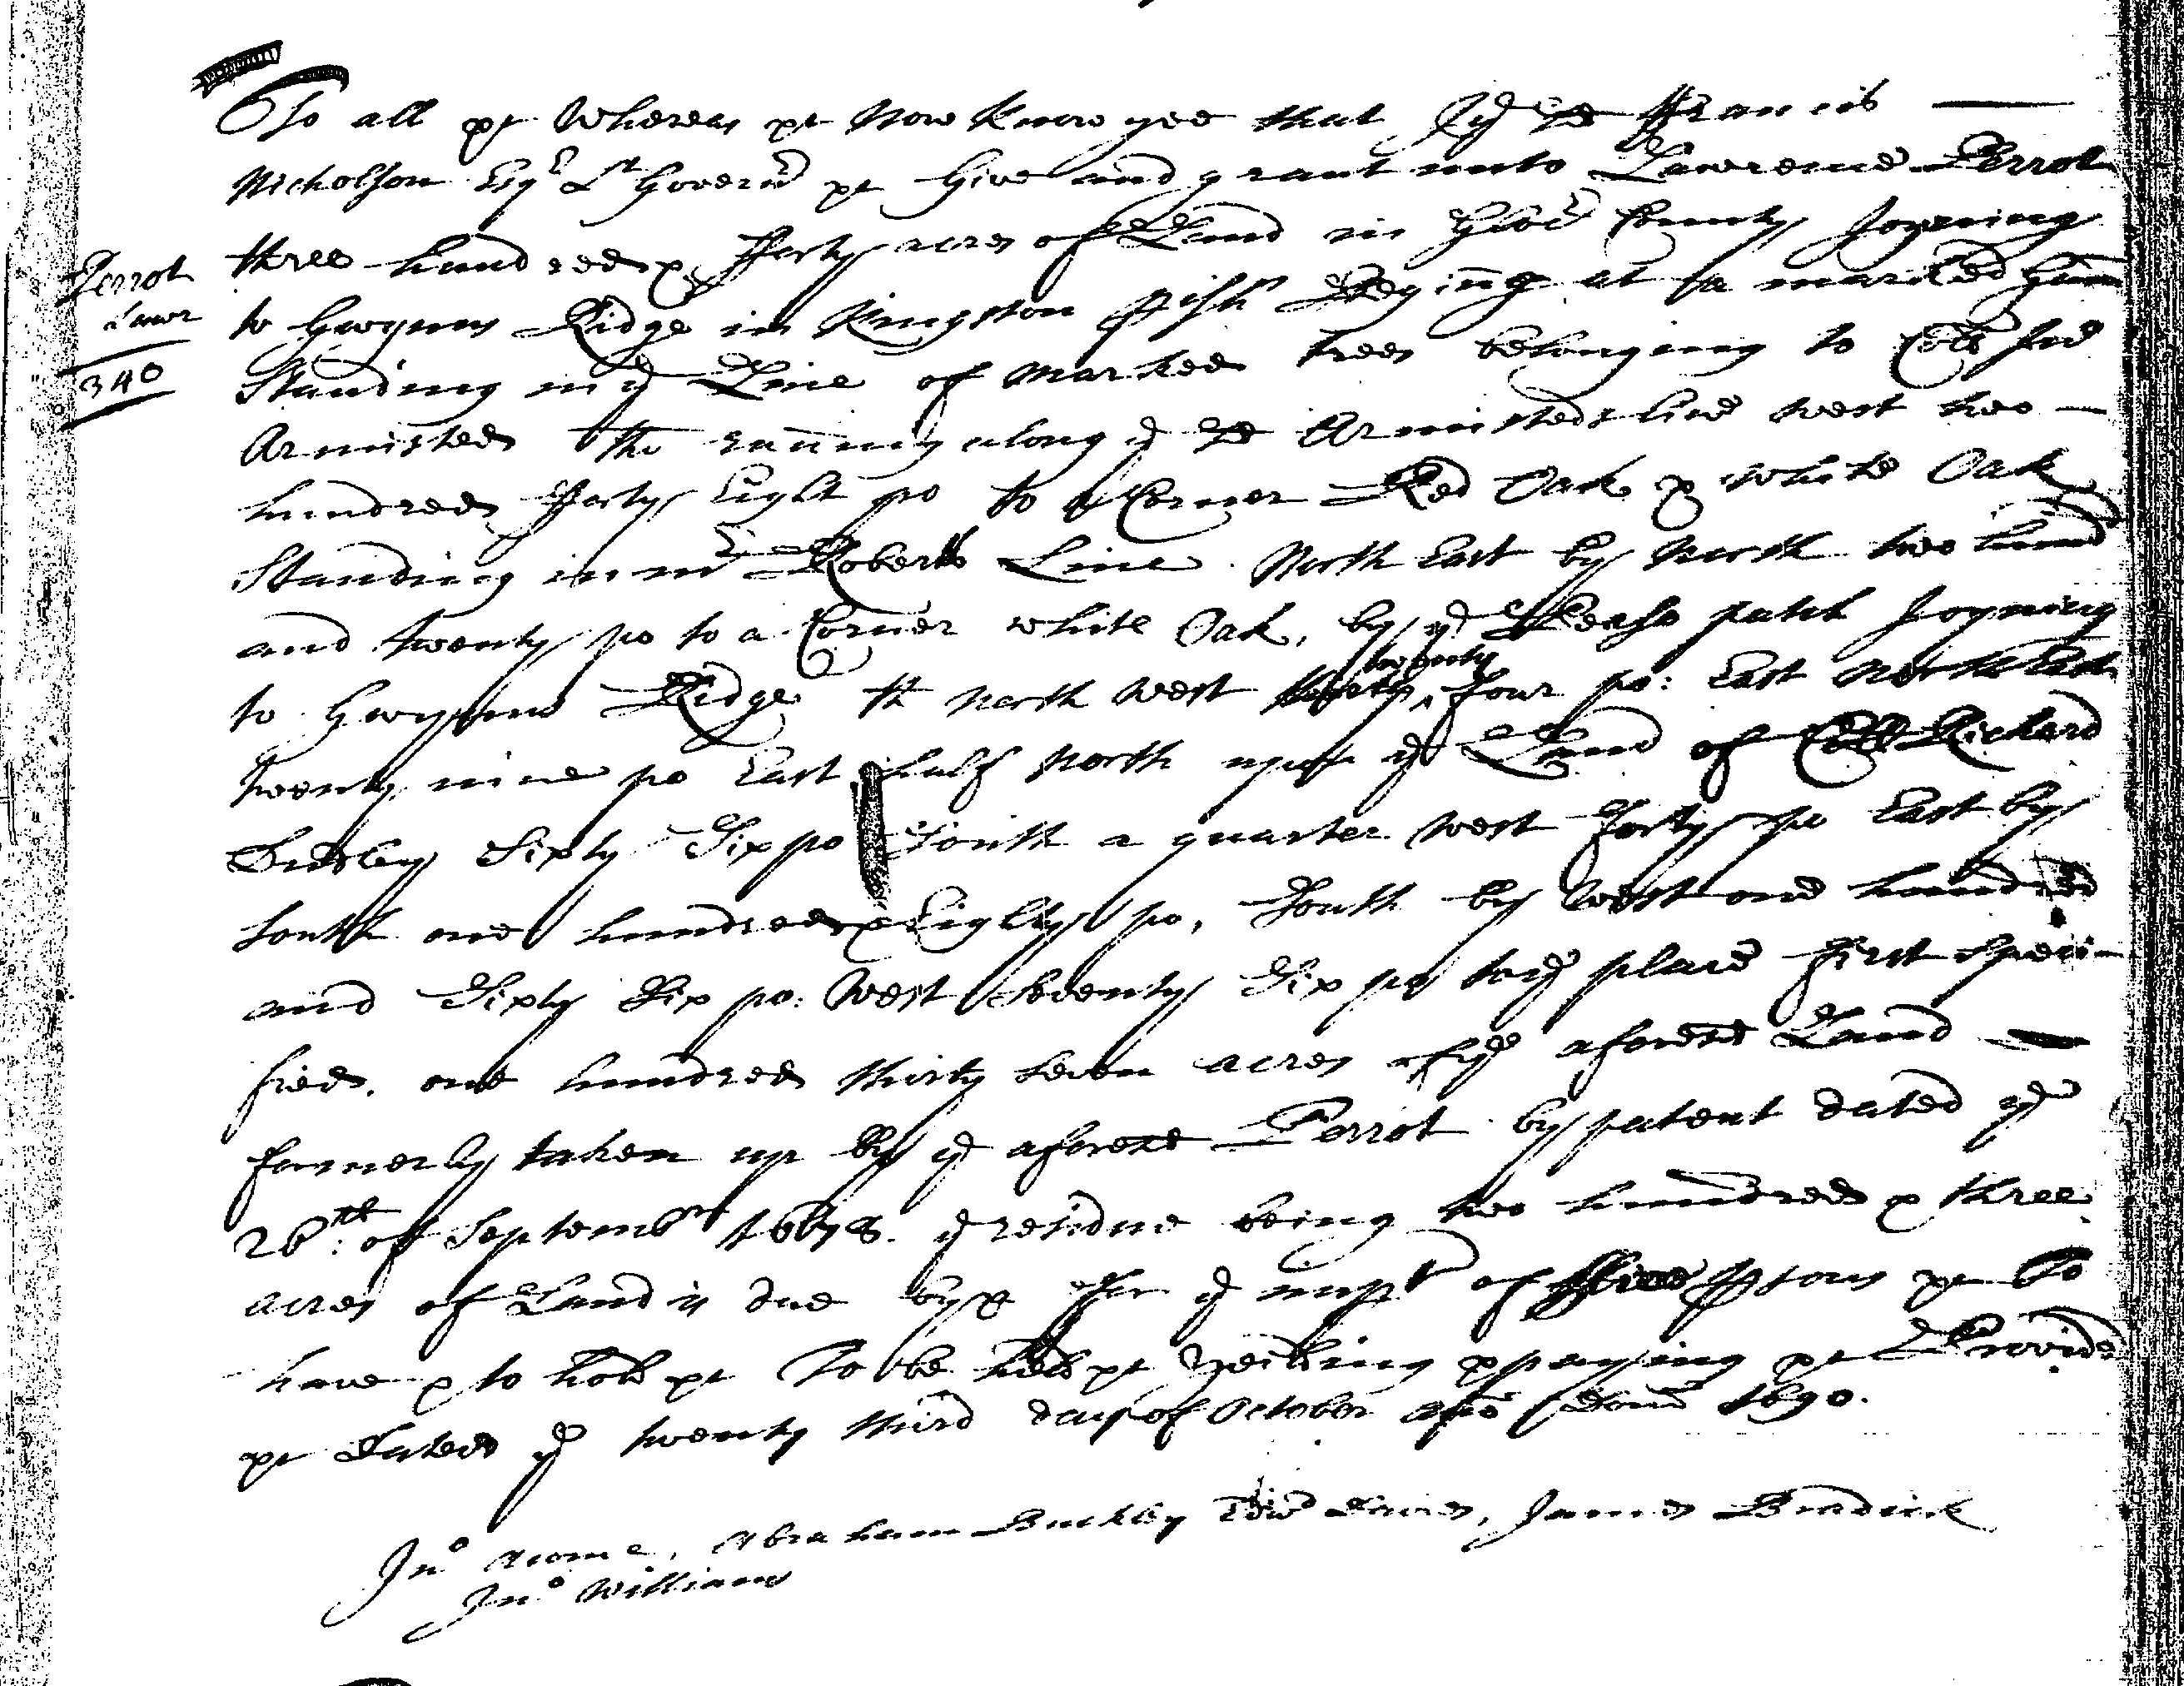 To all &c Whereas &c Now Know yee that I ye sd Francis
Nicholson Esqr Lt Governr &c Give and grant unto Lawrence Perrot
three hundred & Forty acres of Land in Glocr County Joyning
Perrot
Lawr
340
to Gwynns Ridge in Kingston Pish Begiñg at a marked Gum
Standing in ye Line of marked trees belonging to Coll Jno
Armisted Thc runing along ye sd Armisteds line west two
hundred Forty Eight po to a Corner Red Oak & White Oak
Standing in mr Roberts Line North East by North two hund
and twenty po to a Corner white Oak, by ye path Joyning
to Gwynns Ridge th north West twenty four po: East North East
Twenty nine po East half North upon ye Land of Coll Richard
Dudley Sixty Six po South a quarter West Forty po East by
South one hundred & Eighty po, South by West one hundred
and Sixty Six po: West Seventy Six po to ye place first speci-
fied, one hundred thirty seven acres of ye aforesd Land
formerly taken up by ye aforesd Perrot by patent dated ye
26th: of Septembr 1678. ye residue being two hundred & three
acres of Land is due by & For ye impr of five Psons &c To
have & to hold &c To be held &c Yeilding & paying &c Provided
&c Dated ye twenty third day of October año Dom 1690.
Jno Abraham Buckley Edwd Davies, James Bradick
Jno Williams